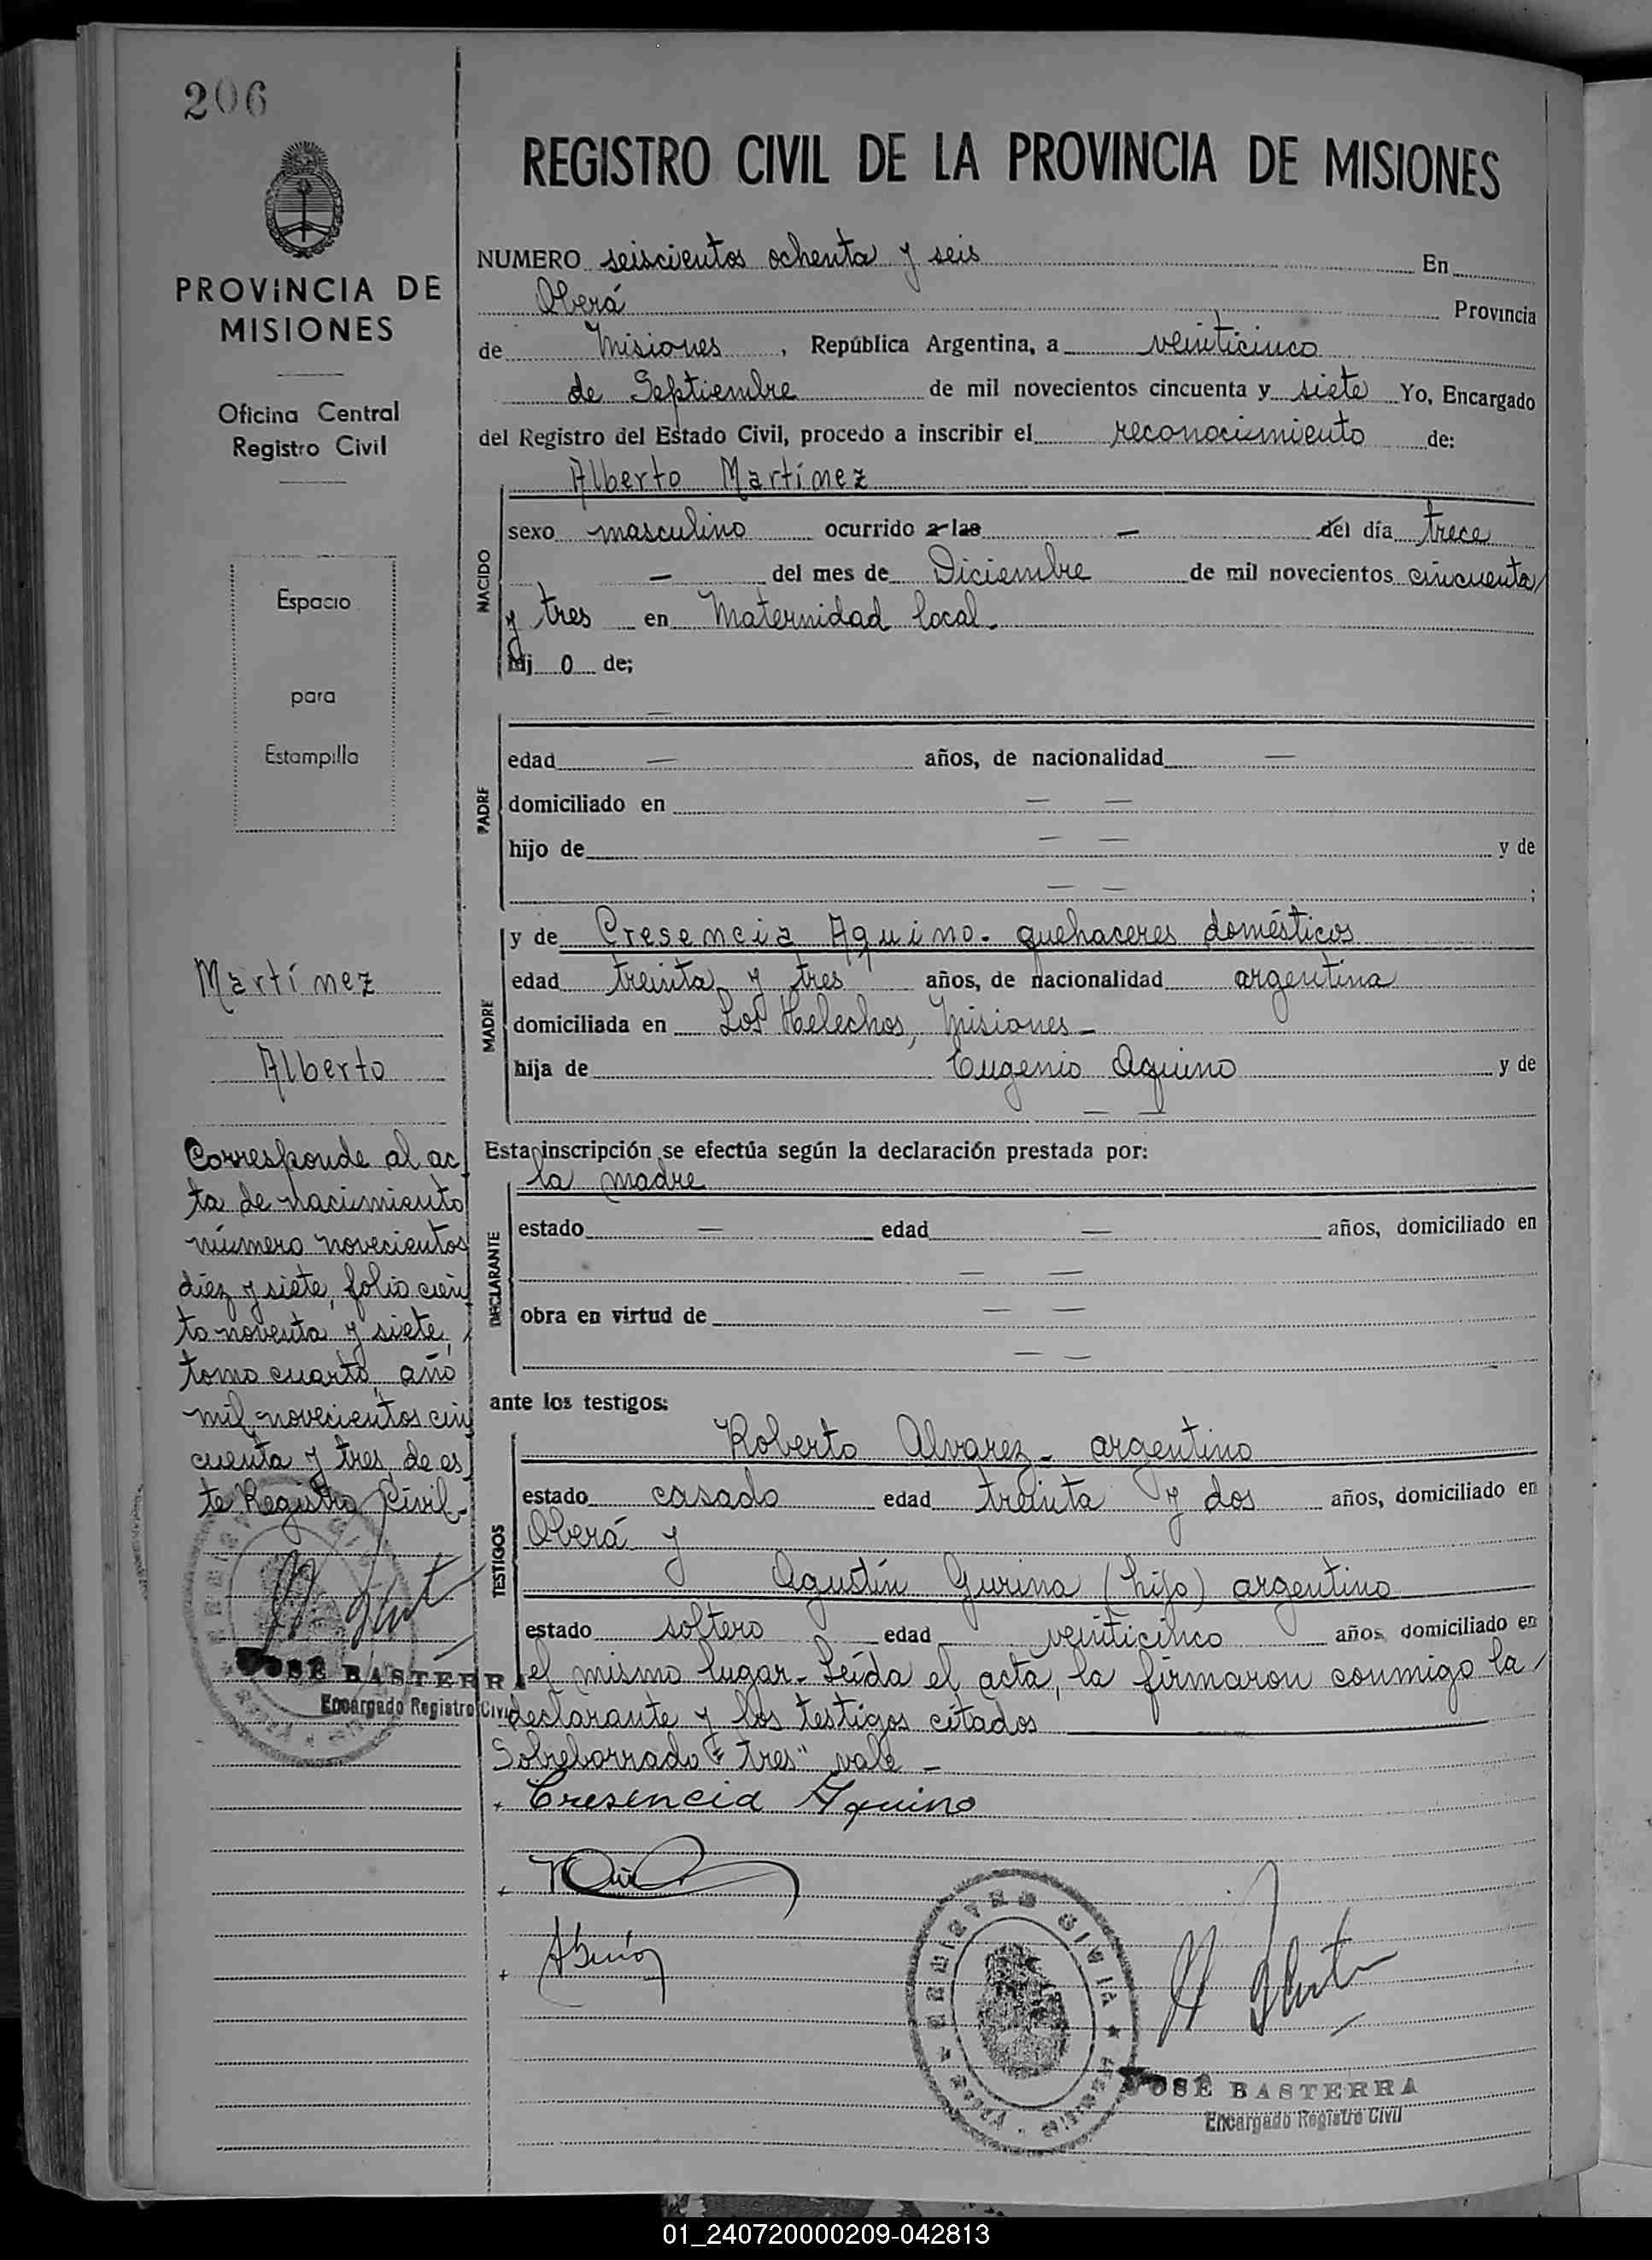 206
PROVINCIA DE
MISIONES
Oficina Central
Registro Civil
Espacio
para
Estampilla
Martínez
Alberto
Corresponde al ac
ta de nacimiento
número novecientos
diez y siete, folio cien
to noventa y siete,
tomo cuarto, año
mil novecientos cin
cuenta y tres, de es
te Registro Civil-
JOSÉ BASTERRA
Encargado Registro Civil
REGISTRO CIVIL DE LA PROVINCIA DE MISIONES
NUMERO seiscientos ochenta y seis En
Oberá Provincia
de Misiones, República Argentina, a veinticinco
de Septiembre de mil novecientos cincuenta y siete Yo, Encargado
del Registro del Estado Civil, procedo a inscribir el reconocimiento de:
Alberto Martínez
NACIDO
sexo masculino ocurrido a las — del día trece
— del mes de Diciembre de mil novecientos cincuenta
y tres en Maternidad local.
hij o de;
—
PADRE
edad — años, de nacionalidad —
domiciliado en — —
hijo de — — y de
— — ;
MADRE
y de Cresencia Aquino. quehaceres domésticos
edad treinta y tres años, de nacionalidad argentina
domiciliada en Los Helechos, Misiones-
hija de Eugenio Aquino y de
— —
Esta inscripción se efectúa según la declaración prestada por:
la madre
DECLARANTE
estado — edad — años, domiciliado en
— —
obra en virtud de — —
— —
ante los testigos:
Roberto Alvarez- argentino
TESTIGOS
estado casado edad treinta y dos años, domiciliado en
Oberá y
Agustín Gurina (hijo) argentino
estado soltero edad veinticinco años domiciliado en
el mismo lugar- Leída el acta, la firmaron conmigo la
declarante y los testigos citados
Sobreborrado "tres" vale -
Cresencia Aquino
REGISTRO CIVIL
JOSÉ BASTERRA
Encargado Registro Civil
01_240720000209-042813